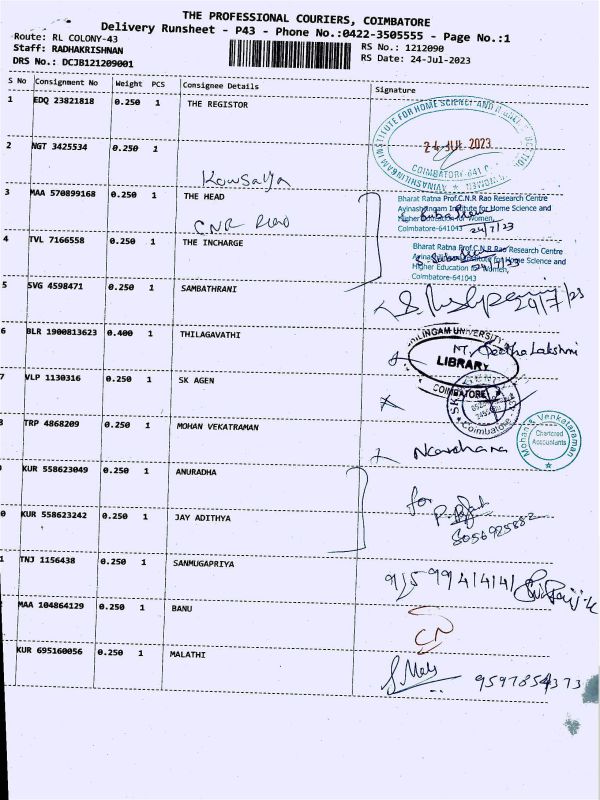 THE PROFESSIONAL COURIERS, COIMBATORE
Delivery Runsheet - P43 - Phone No.:0422-3505555 - Page No.:1
Route: RL COLONY-43
RS No.: 1212090
Staff: RADHAKRISHNAN
RS Date: 24-Jul-2023
DRS No.: DCJB121209001
S No Consignment No Weight PCS Consignee Details Signature
1 EDQ 23821818 0.250 1 THE REGISTOR
24 JUL 2023
COIMBATORE-641
2 NGT 3425534 0.250 1
Kowsalya
3 MAA 570899168 0.250 1 THE HEAD
Bharat Ratna Prof.C.N.R Rao Research Centre
Avinashilingam Institute for Home Science and
Higher Education for Women,
Coimbatore-641043
24/7/23
C.N.R Rao
4 TVL 7166558 0.250 1 THE INCHARGE
Bharat Ratna Prof.C.N.R Rao Research Centre
Avinashilingam Institute for Home Science and
Higher Education for Women,
Coimbatore-641043
5 SVG 4598471 0.250 1 SAMBATHRANI
6 BLR 1900813623 0.400 1 THILAGAVATHI
LIBRARY
COIMBATORE
7 VLP 1130316 0.250 1 SK AGEN
Coimbatore
8 TRP 4868209 0.250 1 MOHAN VEKATRAMAN
Mohan Venkataraman
Chartered
Accountants
KUR 558623049 0.250 1 ANURADHA
for
0 KUR 558623242 0.250 1 JAY ADITHYA
1 TNJ 1156438 0.250 1 SANMUGAPRIYA
MAA 104864129 0.250 1 BANU
KUR 695160056 0.250 1 MALATHI